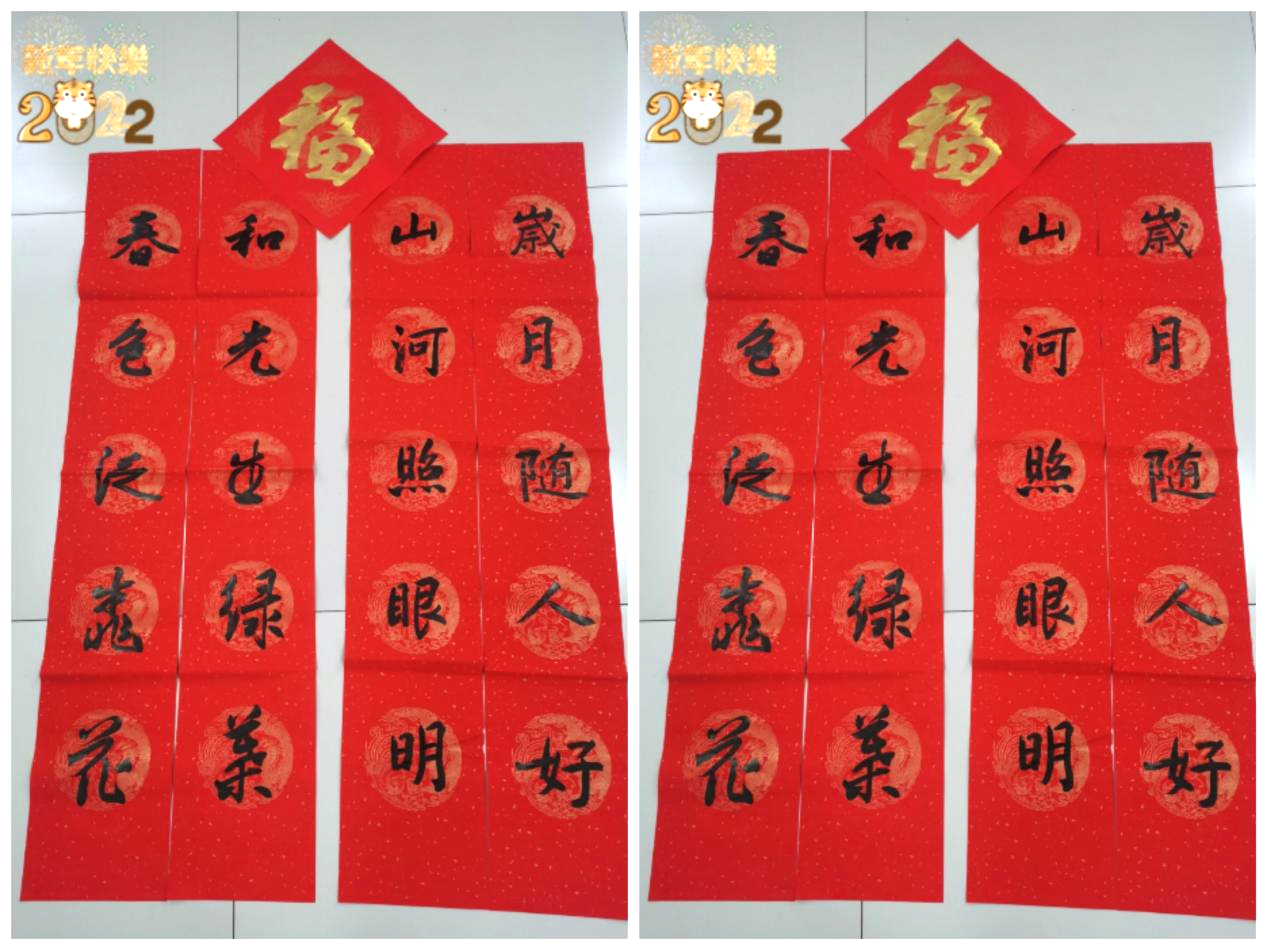 新年快樂
2022
福
嵗月随人好
山河照眼明
和光生绿葉
春色泛桃花
新年快樂
2022
福
嵗月随人好
山河照眼明
和光生绿葉
春色泛桃花